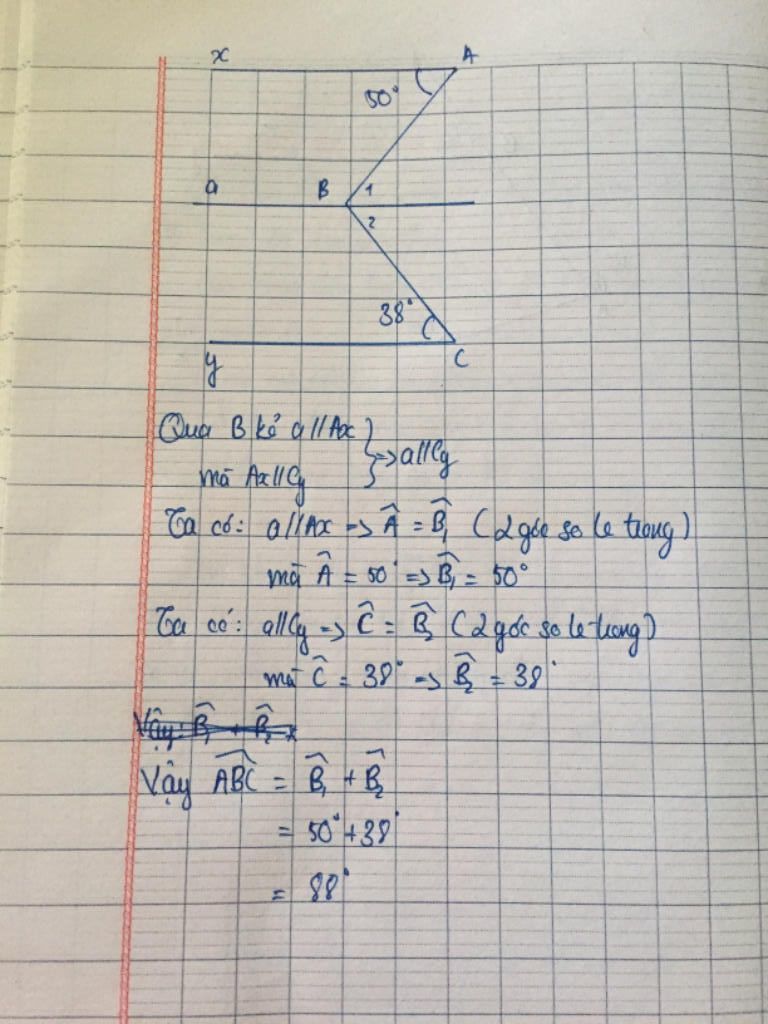 x A
50°
a B 1
2
38°
y C
Qua B kẻ a//Ax
mà Ax//Cy } => a//Cy
Ta có: a//Ax => Â = B̂₁ (2 góc so le trong)
mà Â = 50° => B̂₁ = 50°
Ta có: a//Cy => Ĉ = B̂₂ (2 góc so le trong)
mà Ĉ = 38° => B̂₂ = 38°
Vậy: B̂₁ + B̂₂
Vậy ABĈ = B̂₁ + B̂₂
= 50° + 38°
= 88°